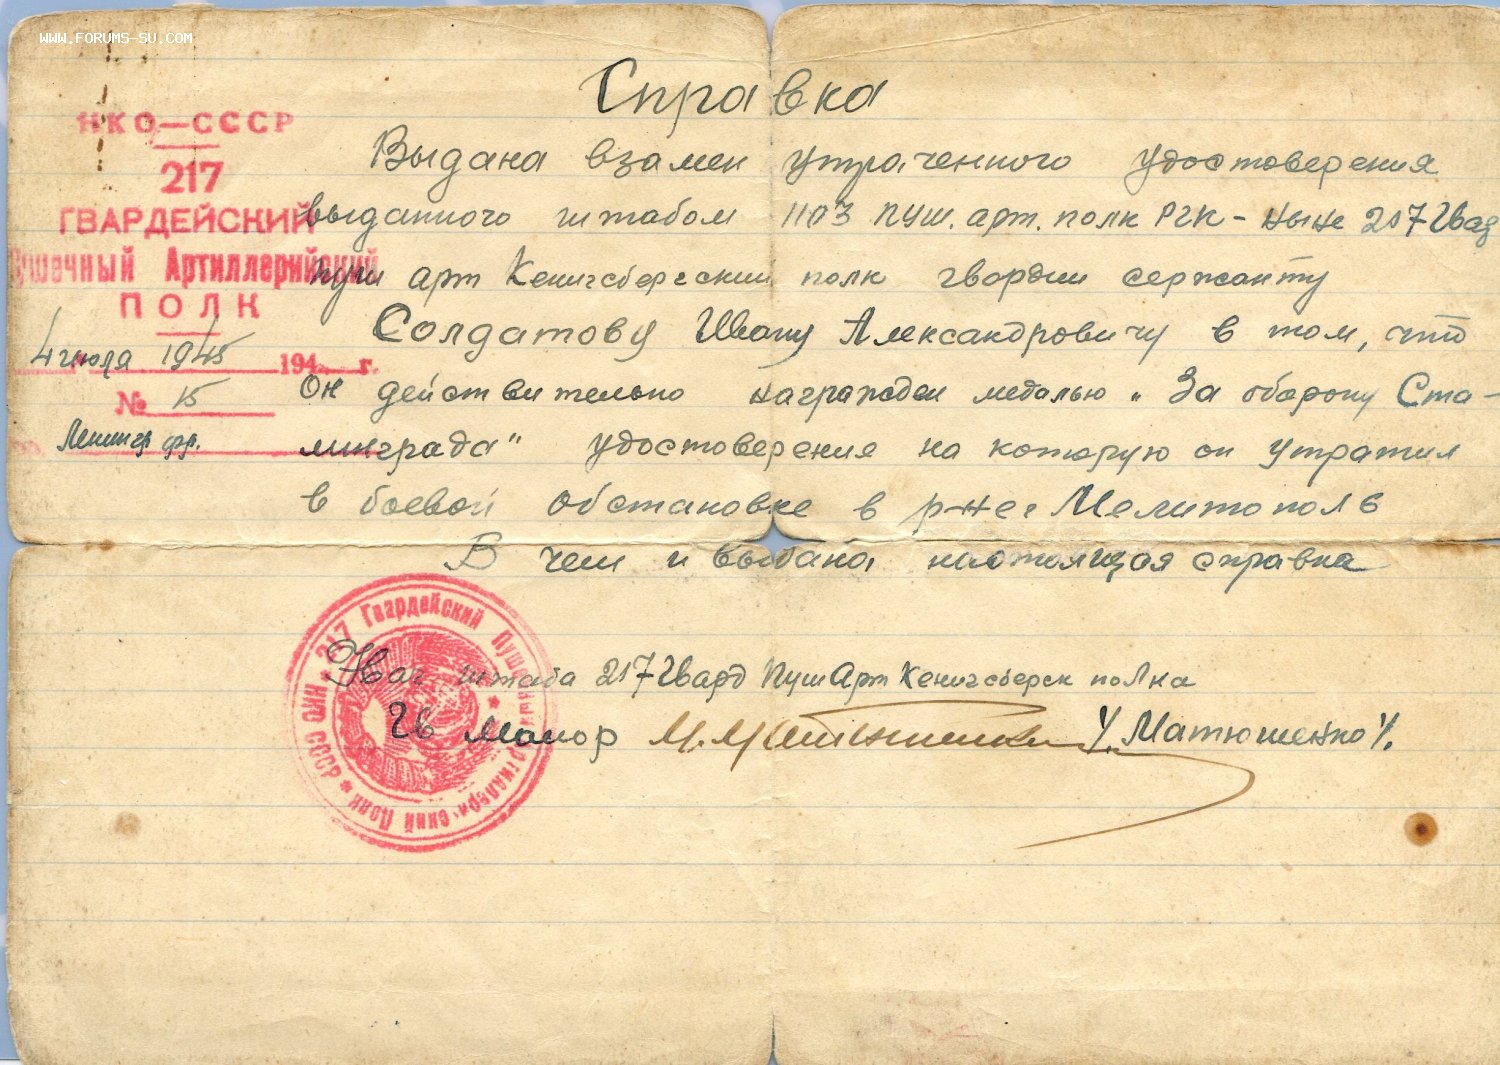 WWW.FORUMS-SU.COM
Справка
НКО—СССР
217
ГВАРДЕЙСКИЙ
Пушечный Артиллерийский
ПОЛК
4 июля 1945 194 г.
№ 15
Ленингр фр.
Выдана взамен утраченного удостоверения
выданного штабом 1103 пуш. арт. полк РГК - ныне 217 Гвард
пуш арт Кенигсбергский полк гвардии сержанту
Солдатову Ивану Александровичу в том, что
Он действительно награжден медалью „За оборону Ста-
линграда" удостоверение на которую он утратил
в боевой обстановке в р-не г Мелитополь
В чем и выдана настоящая справка
Нач штаба 217 Гвард ПушАрт Кенигсберск полка
Гв Маиор /Матюшенко/.
НКО СССР * 217 Гвардейский Пушечный Артиллерийский Полк *